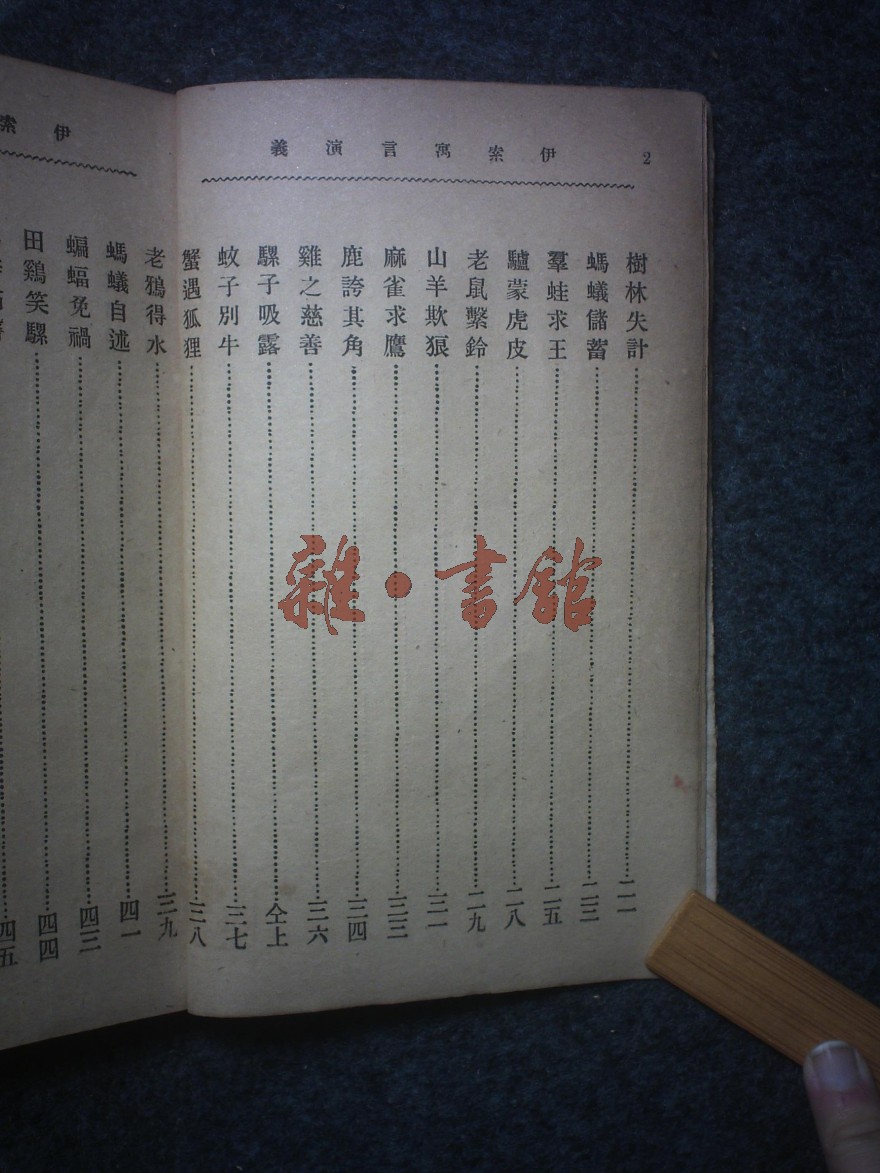 2 伊索寓言演義
樹林失計 二一
螞蟻儲蓄 二三
羣蛙求王 二五
驢蒙虎皮 二八
老鼠繫鈴 二九
山羊欺狼 三一
麻雀求鷹 三三
鹿誇其角 三四
雞之慈善 三六
騾子吸露 仝上
蚊子別牛 三七
蟹遇狐狸 三八
伊索
老鴉得水 三九
螞蟻自述 四一
蝙蝠免禍 四三
田鷄笑騾 四四
四五
雜·書館